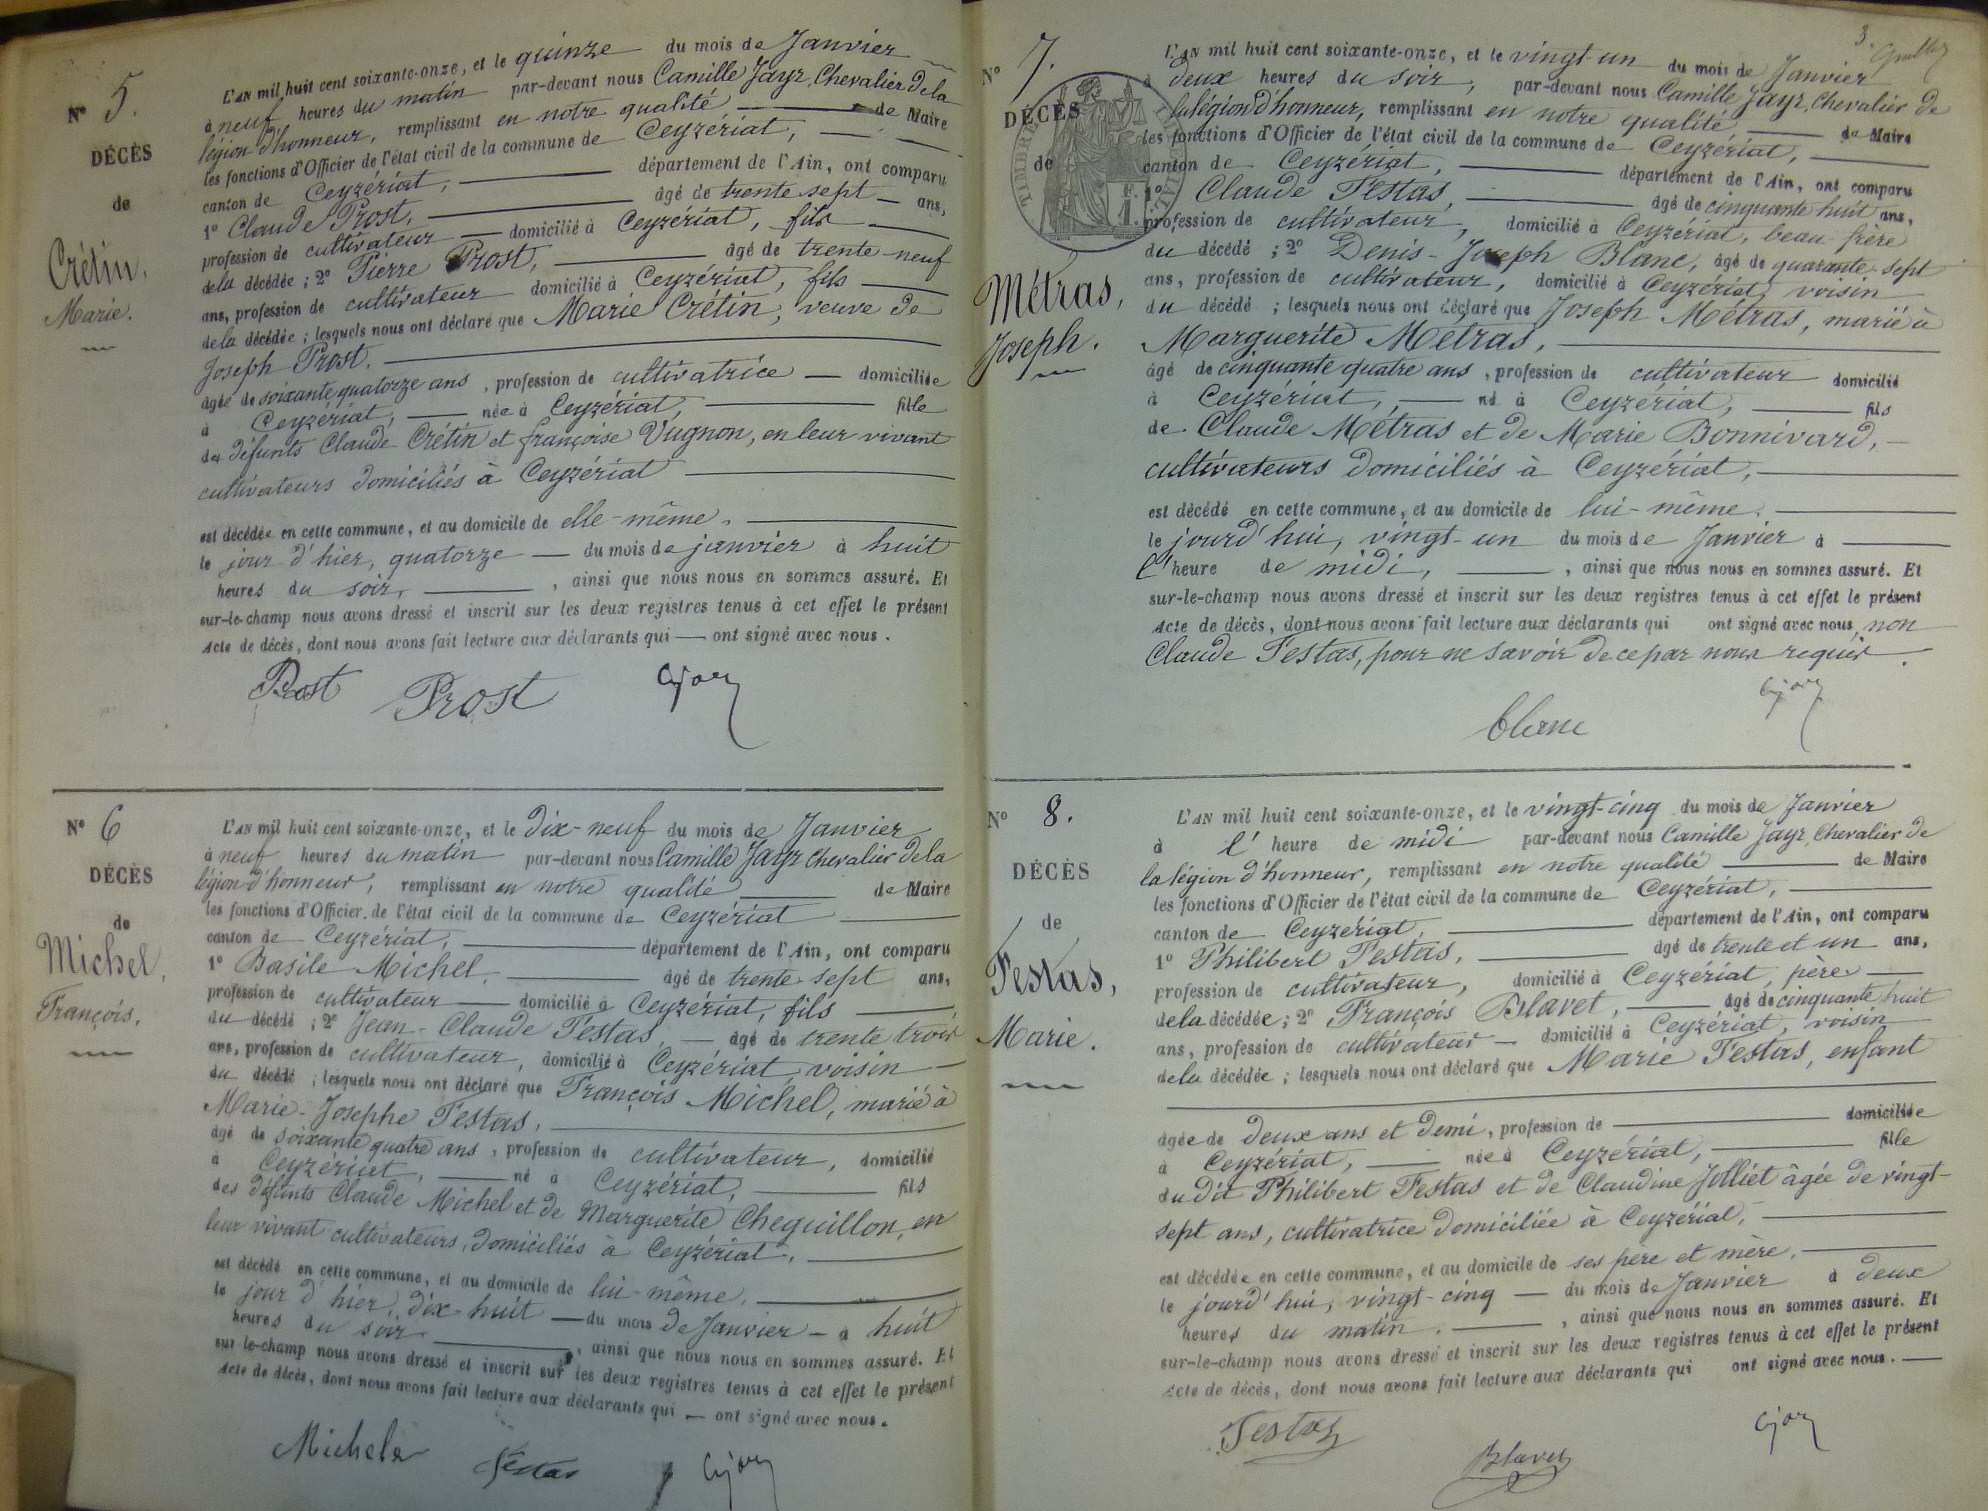 Nº 5.
DÉCÈS
de
Crétin,
Marie.
L'AN mil huit cent soixante-onze, et le quinze du mois de Janvier
à neuf heures du matin par-devant nous Camille Jayr, Chevalier de la
légion d'honneur, remplissant en notre qualité de Maire
les fonctions d'Officier de l'état civil de la commune de Ceyzériat,
canton de Ceyzériat, département de l'Ain, ont comparu
1º Claude Prost, âgé de trente sept ans,
profession de cultivateur domicilié à Ceyzériat, fils
de la décédée ; 2º Pierre Prost, âgé de trente-neuf
ans, profession de cultivateur domicilié à Ceyzériat, fils
de la décédée ; lesquels nous ont déclaré que Marie Crétin, veuve de
Joseph Prost,
âgée de soixante quatorze ans, profession de cultivatrice domiciliée
à Ceyzériat, née à Ceyzériat, fille
des défunts Claude Crétin et françoise Vugnon, en leur vivant
cultivateurs domiciliés à Ceyzériat
est décédée en cette commune, et au domicile de elle-même.
le jour d'hier, quatorze du mois de janvier à huit
heures du soir, , ainsi que nous nous en sommes assuré. Et
sur-le-champ nous avons dressé et inscrit sur les deux registres tenus à cet effet le présent
Acte de décès, dont nous avons fait lecture aux déclarants qui ont signé avec nous.
Prost Prost
Nº 6
DÉCÈS
de
Michel,
François.
L'AN mil huit cent soixante-onze, et le dix-neuf du mois de Janvier
à neuf heures du matin par-devant nous Camille Jayr Chevalier de la
légion d'honneur, remplissant en notre qualité de Maire
les fonctions d'Officier de l'état civil de la commune de Ceyzériat
canton de Ceyzériat, département de l'Ain, ont comparu
1º Basile Michel, âgé de trente sept ans,
profession de cultivateur domicilié à Ceyzériat, fils
du décédé ; 2º Jean-Claude Festas, âgé de trente trois
ans, profession de cultivateur, domicilié à Ceyzériat, voisin
du décédé ; lesquels nous ont déclaré que François Michel, marié à
Marie-Josephe Festas,
âgé de soixante quatre ans, profession de cultivateur, domicilié
à Ceyzériat, né à Ceyzériat, fils
des défunts Claude Michel et de Marguerite Cheguillon, en
leur vivant cultivateurs, domiciliés à Ceyzériat,
est décédé en cette commune, et au domicile de lui-même.
le jour d'hier, dix-huit du mois de Janvier à huit
heures du soir , ainsi que nous nous en sommes assuré. Et
sur-le-champ nous avons dressé et inscrit sur les deux registres tenus à cet effet le présent
Acte de décès, dont nous avons fait lecture aux déclarants qui ont signé avec nous.
Michel Festas
3.
Nº 7.
DÉCÈS
de
Métras,
Joseph.
L'AN mil huit cent soixante-onze, et le vingt-un du mois de Janvier
à deux heures du soir, par-devant nous Camille Jayr, Chevalier de
la légion d'honneur, remplissant en notre qualité de Maire
les fonctions d'Officier de l'état civil de la commune de Ceyzériat,
canton de Ceyzériat, département de l'Ain, ont comparu
1º Claude Festas, âgé de cinquante huit ans,
profession de cultivateur, domicilié à Ceyzériat, beau-frère
du décédé ; 2º Denis-Joseph Blanc, âgé de quarante-sept
ans, profession de cultivateur, domicilié à Ceyzériat, voisin
du décédé ; lesquels nous ont déclaré que Joseph Métras, marié à
Marguerite Métras,
âgé de cinquante quatre ans, profession de cultivateur domicilié
à Ceyzériat, né à Ceyzériat, fils
de Claude Métras et de Marie Bonnivard,
cultivateurs domiciliés à Ceyzériat,
est décédé en cette commune, et au domicile de lui-même.
le jourd'hui, vingt-un du mois de Janvier à
l'heure de midi, , ainsi que nous nous en sommes assuré. Et
sur-le-champ nous avons dressé et inscrit sur les deux registres tenus à cet effet le présent
Acte de décès, dont nous avons fait lecture aux déclarants qui ont signé avec nous, non
Claude Festas, pour ne savoir de ce par nous requis.
blanc
Nº 8.
DÉCÈS
de
Festas,
Marie.
L'AN mil huit cent soixante-onze, et le vingt-cinq du mois de Janvier
à l'heure de midi par-devant nous Camille Jayr, Chevalier de
la légion d'honneur, remplissant en notre qualité de Maire
les fonctions d'Officier de l'état civil de la commune de Ceyzériat,
canton de Ceyzériat, département de l'Ain, ont comparu
1º Philibert Festas, âgé de trente et un ans,
profession de cultivateur, domicilié à Ceyzériat, père
de la décédée ; 2º François Blavet, âgé de cinquante huit
ans, profession de cultivateur domicilié à Ceyzériat, voisin
de la décédée ; lesquels nous ont déclaré que Marie Festas, enfant
âgée de deux ans et demi, profession de domiciliée
à Ceyzériat, née à Ceyzériat, fille
du dit Philibert Festas et de Claudine Jolliet âgée de vingt-
sept ans, cultivatrice domiciliée à Ceyzériat,
est décédée en cette commune, et au domicile de ses père et mère.
le jourd'hui, vingt-cinq du mois de Janvier à deux
heures du matin. , ainsi que nous nous en sommes assuré. Et
sur-le-champ nous avons dressé et inscrit sur les deux registres tenus à cet effet le présent
Acte de décès, dont nous avons fait lecture aux déclarants qui ont signé avec nous.
Festas
Blavet